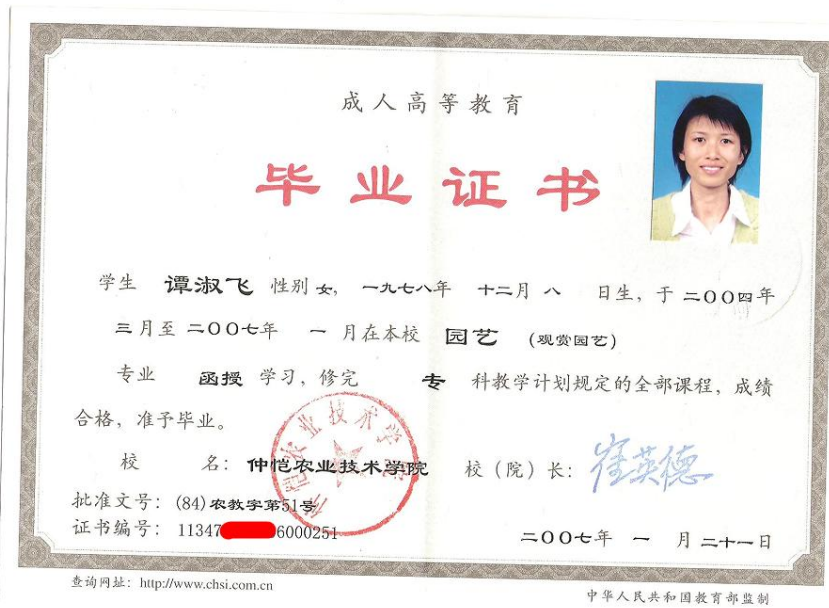 成人高等教育
毕业证书
学生 谭淑飞 性别 女, 一九七八年 十二月 八 日生，于 二〇〇四年
三月至 二〇〇七年 一 月在本校 园艺 (观赏园艺)
专业 函授 学习，修完 专 科教学计划规定的全部课程，成绩
合格，准予毕业。
校 名：仲恺农业技术学院 校（院）长：崔英德
仲恺农业技术学院
批准文号：(84)农教字第51号
证书编号：11347 6000251
二〇〇七年 一 月 二十一日
查询网址：http://www.chsi.com.cn
中华人民共和国教育部监制